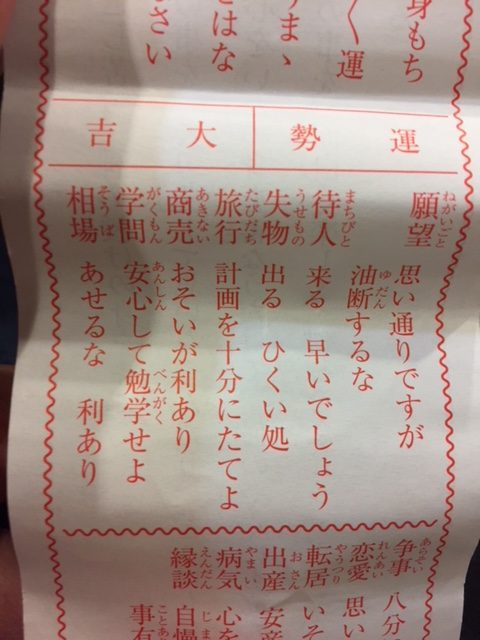 身もち
く運
りまゝ
とはな
なさい
運勢 大吉
願望 思い通りですが
油断するな
待人 来る 早いでしょう
失物 出る ひくい処
旅行 計画を十分にたてよ
商売 おそいが利あり
学問 安心して勉学せよ
相場 あせるな 利あり
争事 八分
恋愛 思い
転居 いそ
出産 安産
病気 心を
縁談 自慢
事有